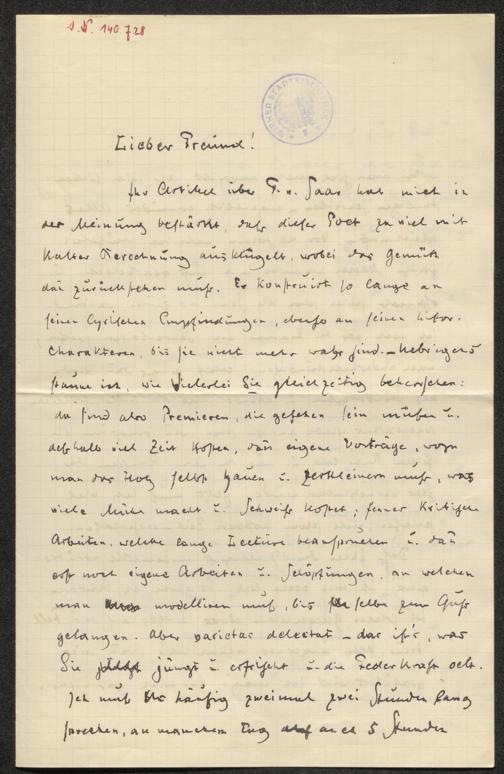 I. N. 140.728
WIENER STADTBIBLIOTHEK
Lieber Freund!
Ihr Artikel über F. v. Saar hat mich in
der Meinung bestärkt, daß dieser Poet zu viel mit
kalter Berechnung ausklügelt, wobei das Gemüth
dan zurückstehen muß. Er konstruirt so lange an
seinen lyrischen Empfindungen, ebenso an seinen histor.
Charakteren, bis sie nicht mehr wahr sind. – Uebrigens
staune ich, wie Vielerlei Sie gleichzeitig beherrschen:
da sind also Premièren, die gesehen sein müßen u.
deßhalb viel Zeit kosten, dan eigene Vorträge, wozu
man das Holz selbst hauen u. zerkleinern muß, was
viele Mühe macht u. Schweiß kostet; ferner kritische
Arbeiten, welche lange Lectüre beanspruchen u. dan
erst noch eigene Arbeiten u. Schöpfungen, an welchen
man modelliren muß, bis selbe zum Guße
gelangen. Aber varietas delectat – das ist's, was
Sie jüngt u. erfrischt u. die Federkraft oelt.
Ich muß häufig zweimal zwei Stunden lang
sprechen, an manchem Tag auch 5 Stunden